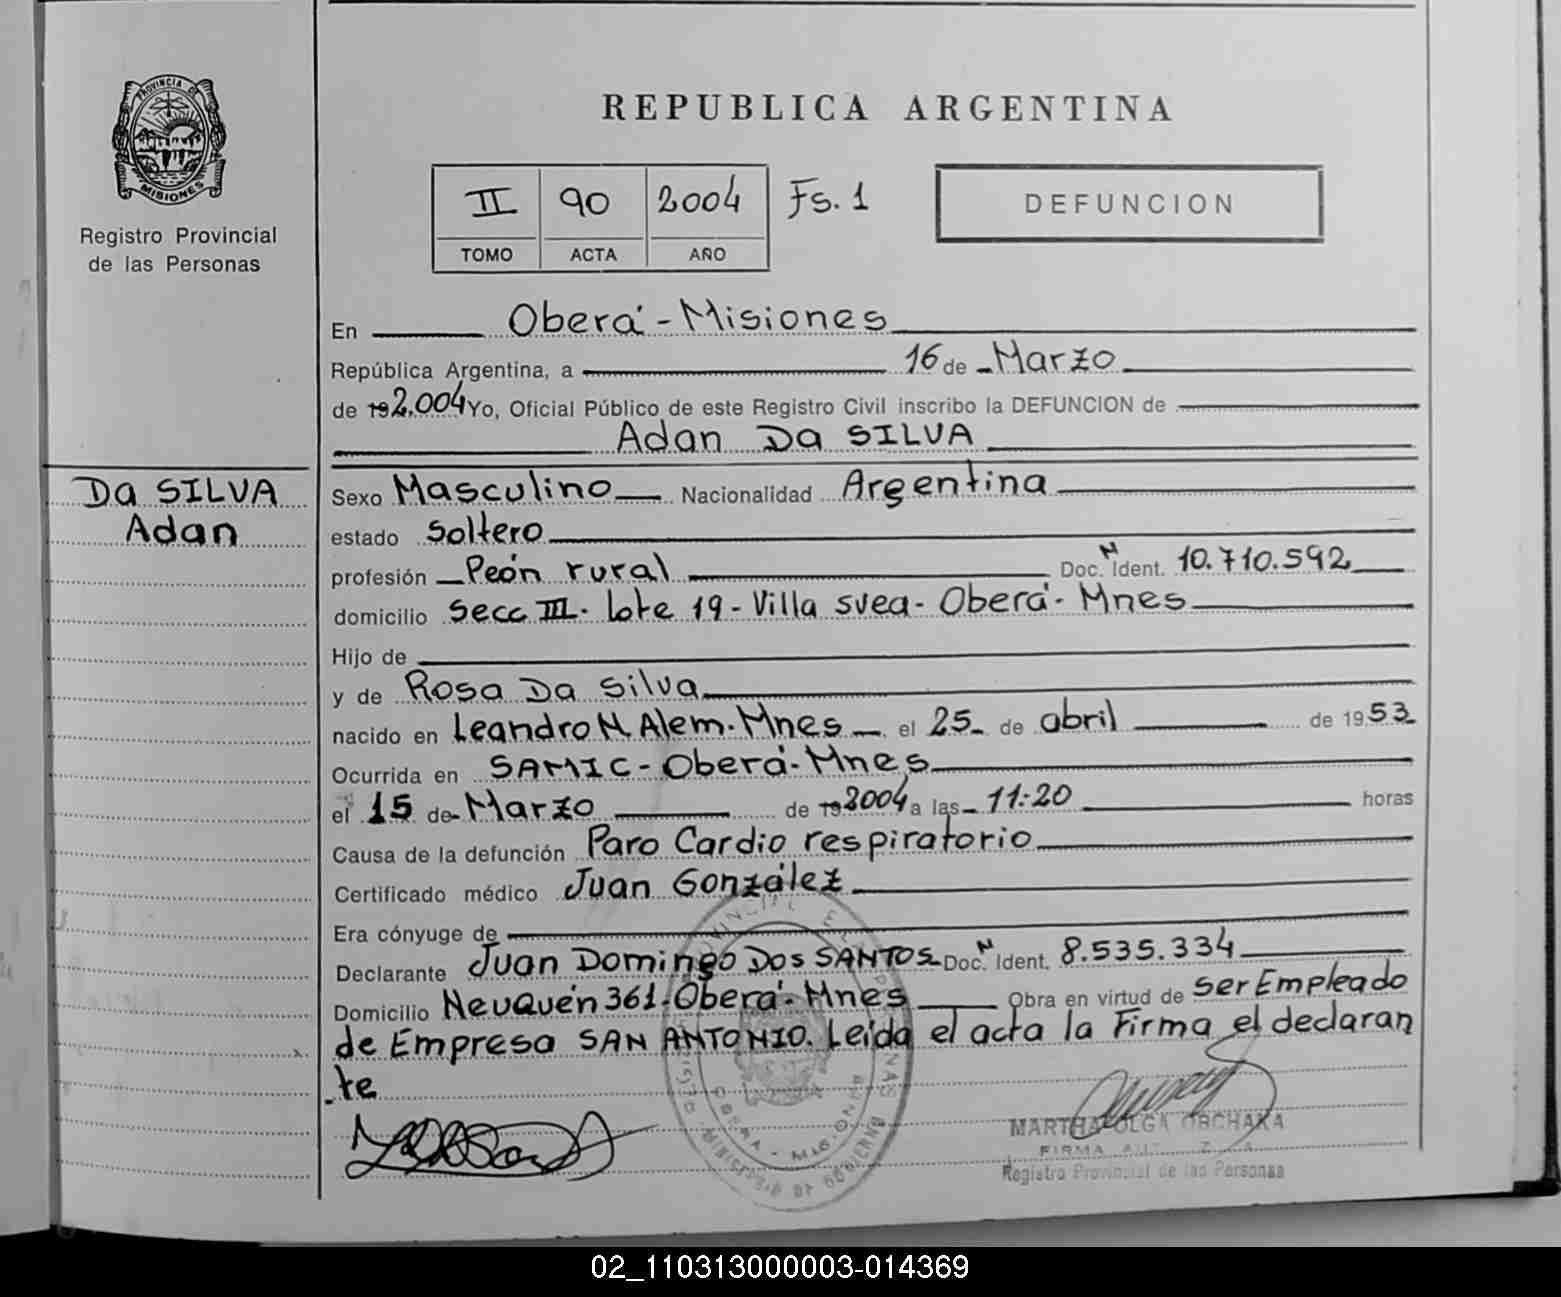 PROVINCIA DE
MISIONES
Registro Provincial
de las Personas
Da SILVA
Adan
REPUBLICA ARGENTINA
II 90 2004 Fs. 1
TOMO ACTA AÑO
DEFUNCION
En Oberá - Misiones
República Argentina, a 16 de Marzo
de 19 2.004 Yo, Oficial Público de este Registro Civil inscribo la DEFUNCION de
Adan Da SILVA
Sexo Masculino Nacionalidad Argentina
estado Soltero
profesión Peón rural Doc. N Ident. 10.710.592
domicilio Secc III. Lote 19 - Villa svea - Oberá - Mnes
Hijo de
y de Rosa Da Silva
nacido en Leandro N. Alem. Mnes el 25 de abril de 1953
Ocurrida en SAMIC - Oberá - Mnes
el 15 de Marzo de 19 2004 a las 11:20 horas
Causa de la defunción Paro Cardio respiratorio
Certificado médico Juan González
Era cónyuge de
Declarante Juan Domingo Dos SANTOS Doc. N Ident. 8.535.334
Domicilio Neuquén 361 - Oberá - Mnes Obra en virtud de ser Empleado
de Empresa SAN ANTONIO. Leída el acta la Firma el declaran
te
OBERA - MISIONES
MINISTERIO DE GOBIERNO
MARTHA OLGA OBCHAKA
FIRMA
Registro Provincial de las Personas
02_110313000003-014369